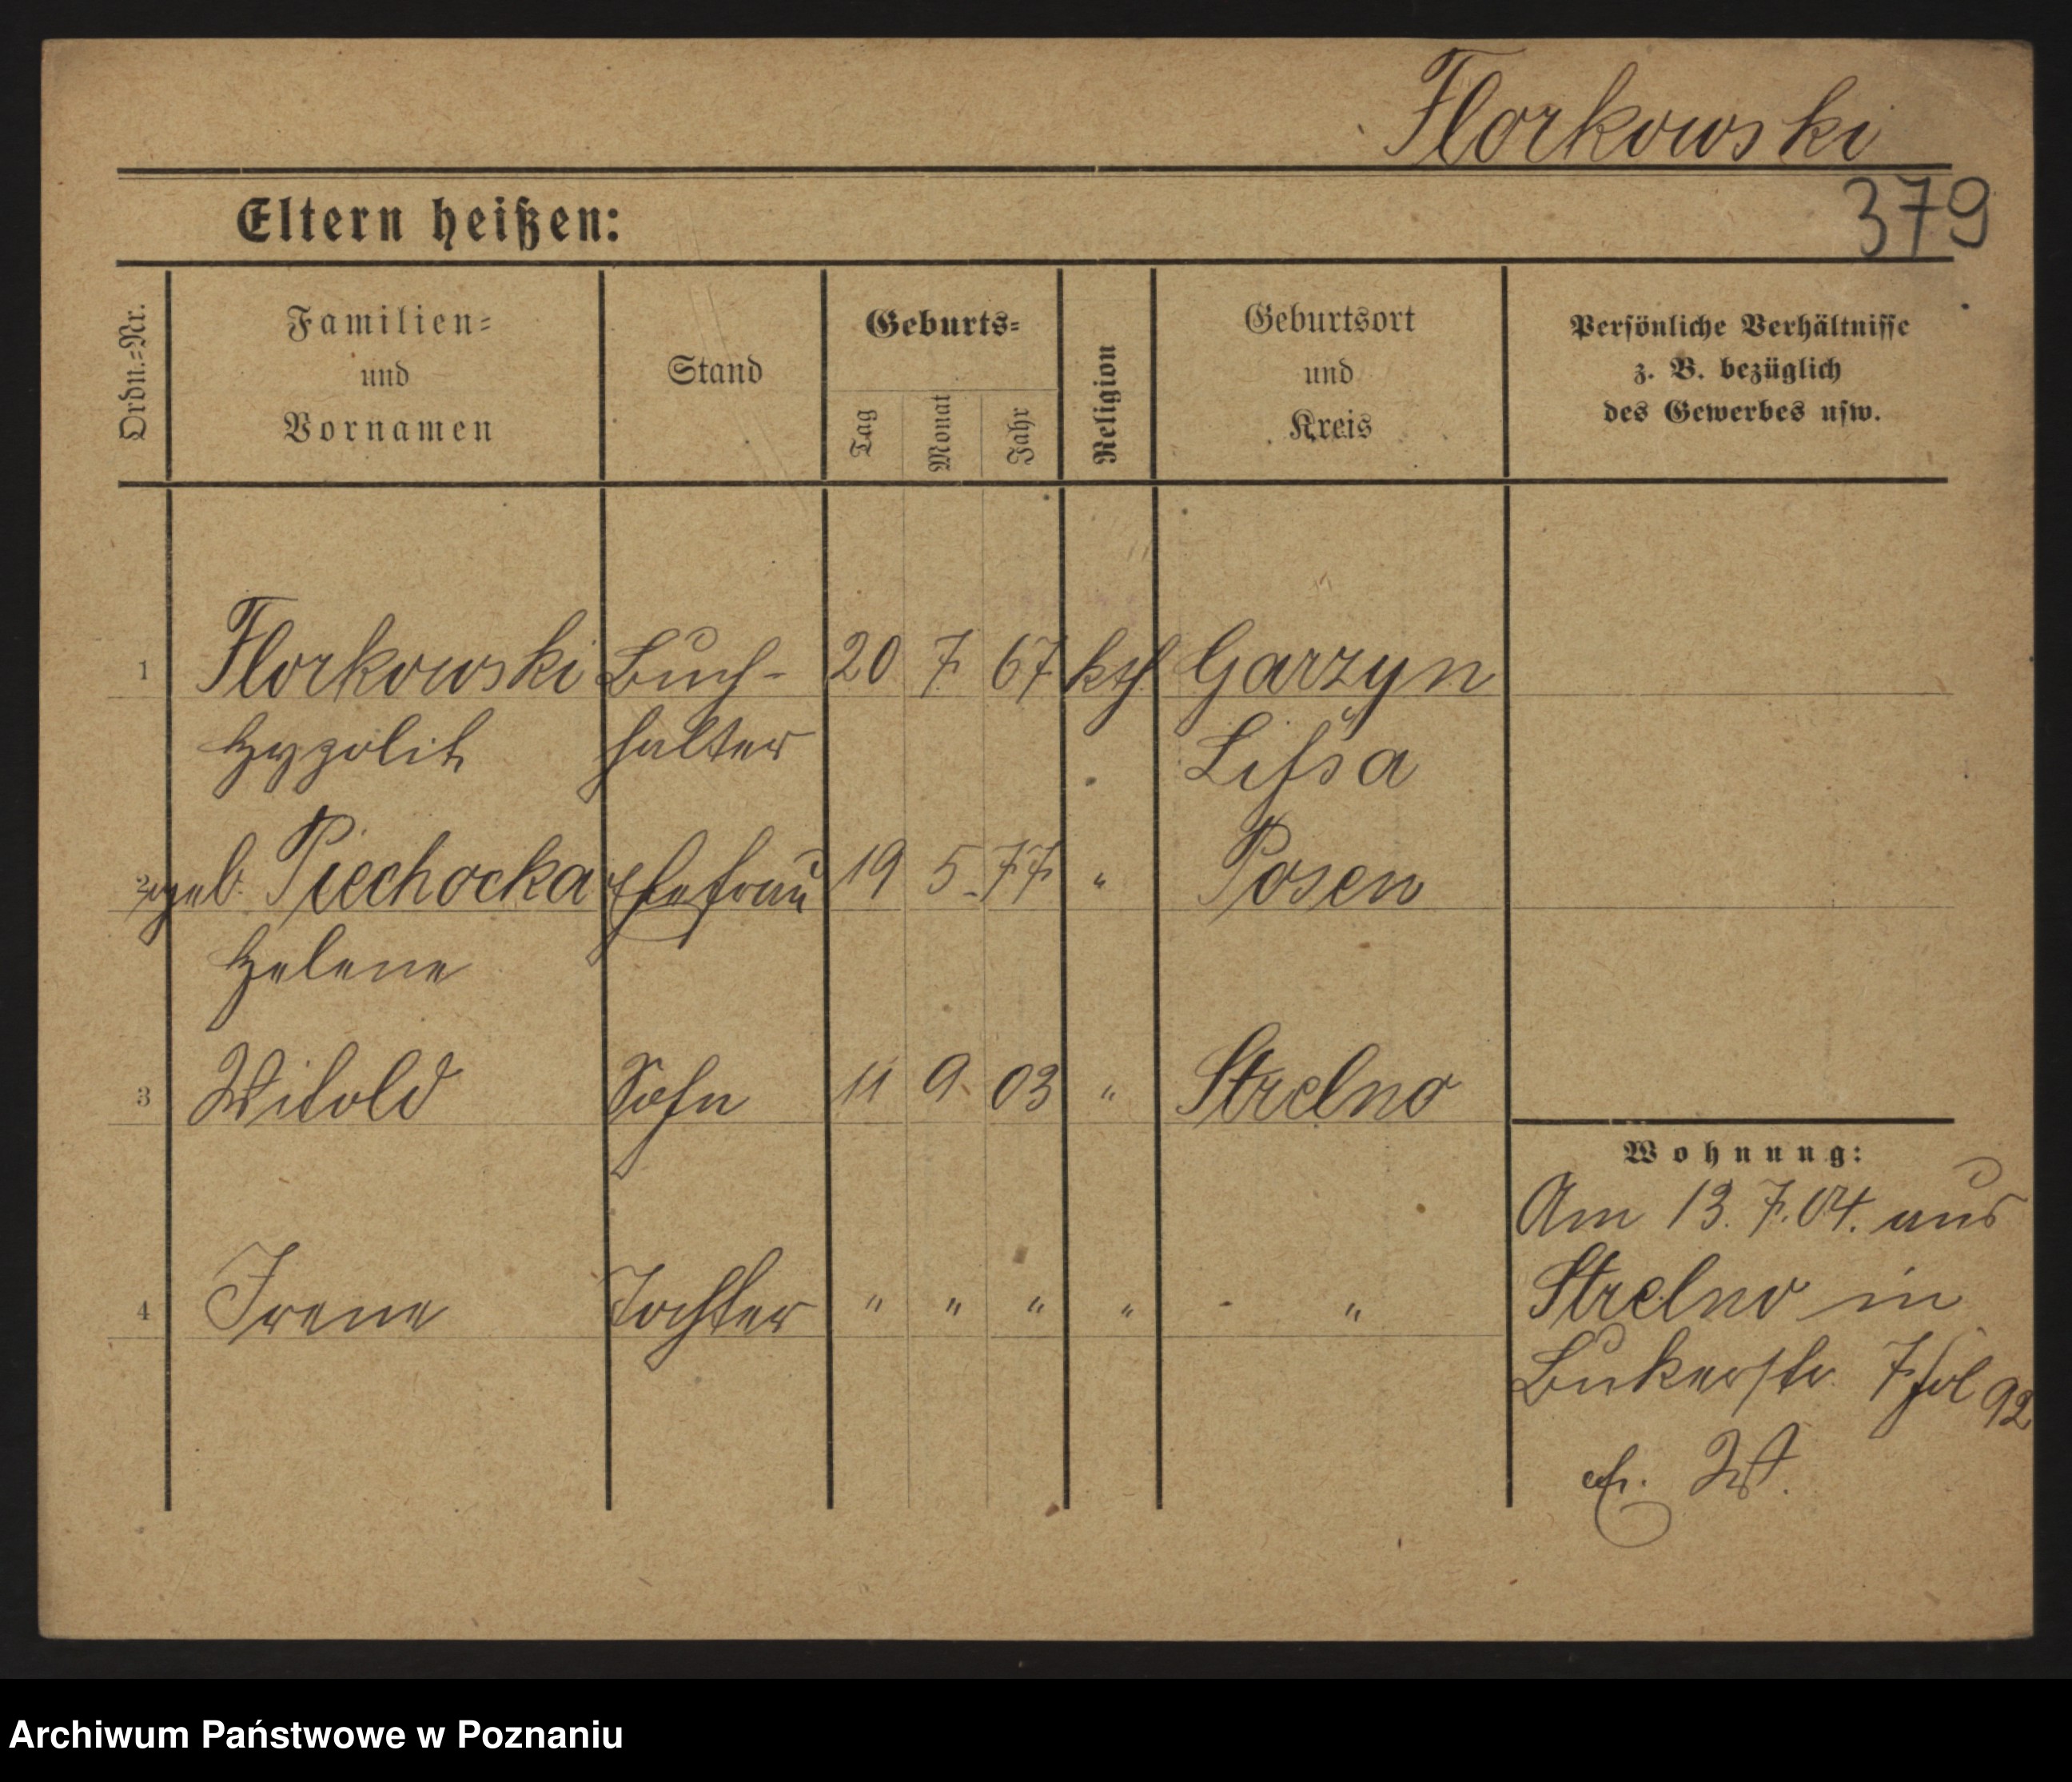 Florkowski
379
Eltern heißen:
Ordn.-Nr.
Familien- und Vornamen
Stand
Geburts-
Tag
Monat
Jahr
Religion
Geburtsort und Kreis
Persönliche Verhältnisse
z. B. bezüglich
des Gewerbes usw.
1 Florkowski Buch- 20 7 67 kth Garzyn
Hypolit halter Lissa
2 geb. Piechocka Ehefrau 19 5 77 " Posen
Helene
3 Witold Sohn 11 9 03 " Strelno
4 Irene Tochter " " " " "
Wohnung:
Am 13. 7. 04. aus
Strelno in
Bukerstr. 7 fol 92
W.
Archiwum Państwowe w Poznaniu